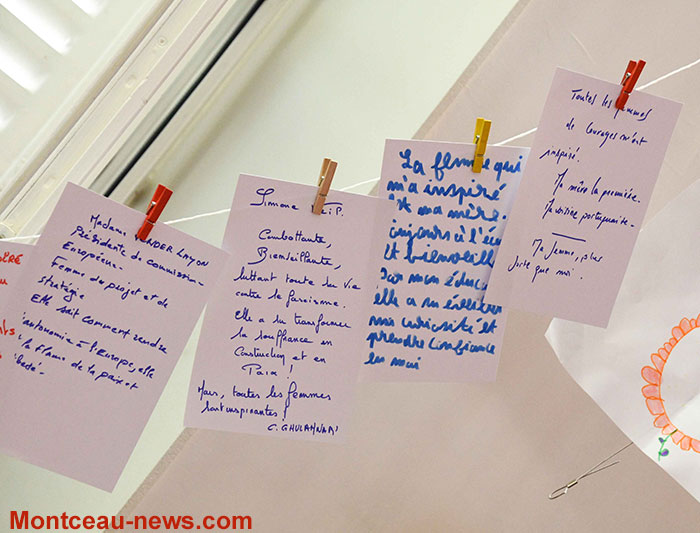 Madame VENDER LAYON
Présidente de commission
Européenne
Femme de projet et de
stratégie
Elle sait comment rendre
autonomie à l'Europe, elle
la flamme de la paix et
Simone P.
Combattante,
Bienveillante,
luttant toute sa vie
contre le
Elle a su transformer
la souffrance en
Construction et en
Paix !
Mais, toutes les femmes
sont inspirantes !
La femme qui
m'a inspiré
est ma mère.
toujours à l'éc
et bienveill
Par mon éduca
elle a su éveiller
ma curiosité et
prendre confiance
en moi
Toutes les femmes
de Courages m'ont
inspiré.
Ma mère la première.
portugaise
Ma femme, plus
forte que moi.
Montceau-news.com